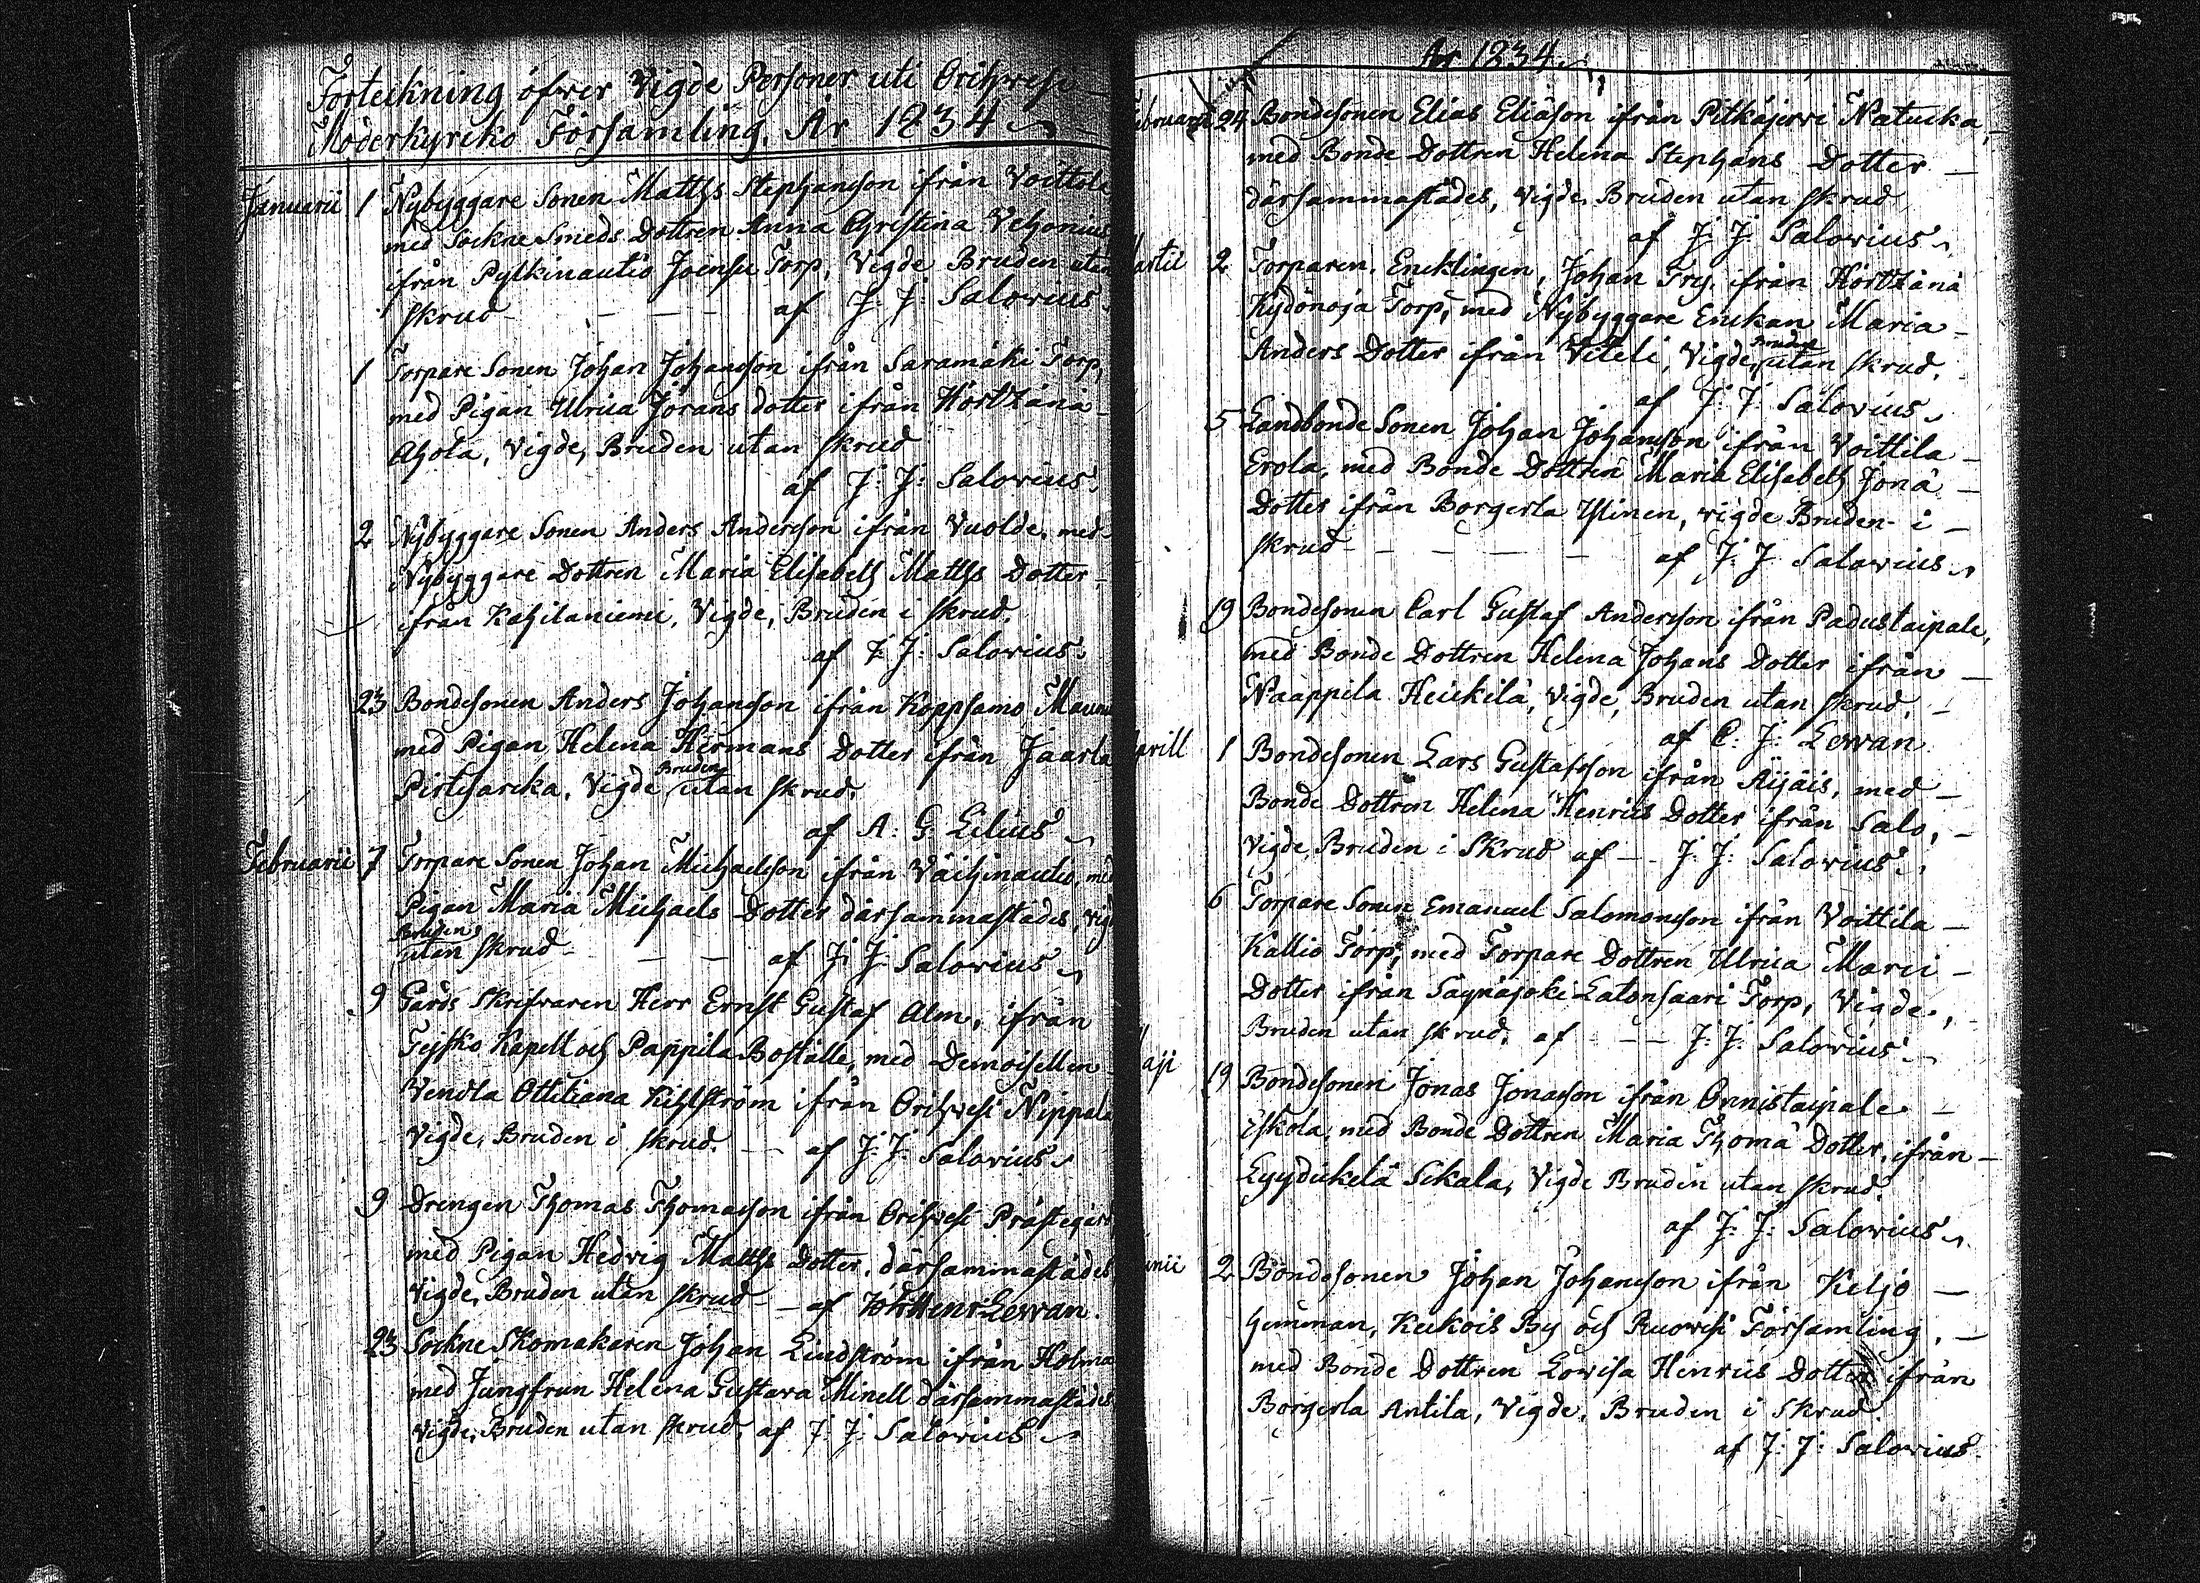 Förteckning öfver Vigde Personer uti Orihvesi
Moderkyrko Församling. År 1834
Januarii 1 Nybyggare Sonen Matths Stephansson ifrån Voittila
med Sockne Smeds Dottren Anna Christina Vehonius
ifrån Pylkinautio Joensu Torp, Vigde Bruden utan
skrud - - - - af J: J: Salovius
1 Torpare Sonen Johan Johansson ifrån Saramäki Torp,
med Pigan Ulrica Jörans dotter ifrån Hörtzänä
Ahola, Vigde, Bruden utan skrud
af J: J: Salovius.
2 Nybyggare Sonen Anders Andersson ifrån Vuolde, med
Nybyggare Dottren Maria Elisabeth Matths Dotter
ifrån Kahilaniemi, Vigde, Bruden i skrud.
af J: J: Salovius.
23 Bondesonen Anders Johansson ifrån Koppsamo
med Pigan Helena Hermans Dotter ifrån Jaarla
Pirtisarka, Vigde Bruden utan skrud.
af A: G: Lilius
Februarii 7 Torpare Sonen Johan Michaelsson ifrån Väihinautio, med
Pigan Maria Michaels Dotter därsammastädes, vigd
Bruden utan skrud - - - af J: J: Salovius
9 Gårds Skrifvaren Herr Ernst Gustaf Alm, ifrån
Tejsko Kapell och Pappila Boställe, med Demoisellen
Vendla Ottiliana Kihlström ifrån Orihvesi Nippala
Vigde, Bruden i skrud. - - af J: J: Salovius
9 Drengen Thomas Thomasson ifrån Orihvesi Prästegård
med Pigan Hedvig Matths Dotter, därsammastädes
Vigde, Bruden utan skrud - - af Henr Lewan.
23 Sockne Skomakaren Johan Lindström ifrån Holma
med Jungfrun Helena Gustava Minell därsammastädes
Vigde, Bruden utan skrud, af J: J: Salovius
År 1834
Februarii 24 Bondesonen Elias Eliäson ifrån Pitkäjervi Natucka,
med Bonde Dottren Helena Stephans Dotter
därsammastädes, Vigde, Bruden utan skrud
af J: J: Salovius
Martii 2 Torparen, Enklingen, Johan Fry, ifrån Hörtzänä
Kydönoja Torp, med Nybyggare Enkan Maria
Anders Dotter ifrån Viteli, Vigde, Bruden utan skrud.
af J: J: Salovius
5 Landbonde Sonen Johan Johansson ifrån Voittila
Erola, med Bonde Dottren Maria Elisabeth Jonä
Dotter ifrån Borgerla Ylinen, vigde Bruden i
skrud - - - - af J: J: Salovius
19 Bondesonen Carl Gustaf Andersson ifrån Padustaipale,
med Bonde Dottren Helena Johans Dotter ifrån
Naappila Heickilä, Vigde, Bruden utan skrud,
af C: J: Lewan
Aprill 1 Bondesonen Lars Gustafsson ifrån Äijäis, med
Bonde Dottren Helena Henrics Dotter ifrån Salo,
Vigde, Bruden i Skrud af - - J: J: Salovius
6 Torpare Sonen Emanuel Salomonsson ifrån Voittila
Kallio Torp, med Torpare Dottren Ulrica Marci
Dotter ifrån Säynäjoki Latonsaari Torp, Vigde,
Bruden utan skrud, af - - - J: J: Salovius
Maji 19 Bondesonen Jonas Jonasson ifrån Onnistaipale
Eskola, med Bonde Dottren Maria Thomä Dotter, ifrån
Lyydickelä Sikala, Vigde Bruden utan skrud.
af J: J: Salovius
Junii 2 Bondesonen Johan Johansson ifrån Keljo
Himman, Kukois By och Ruovesi Församling,
med Bonde Dottren Lovisa Henrics Dotter ifrån
Borgerla Antila, Vigde, Bruden i Skrud.
af J: J: Salovius